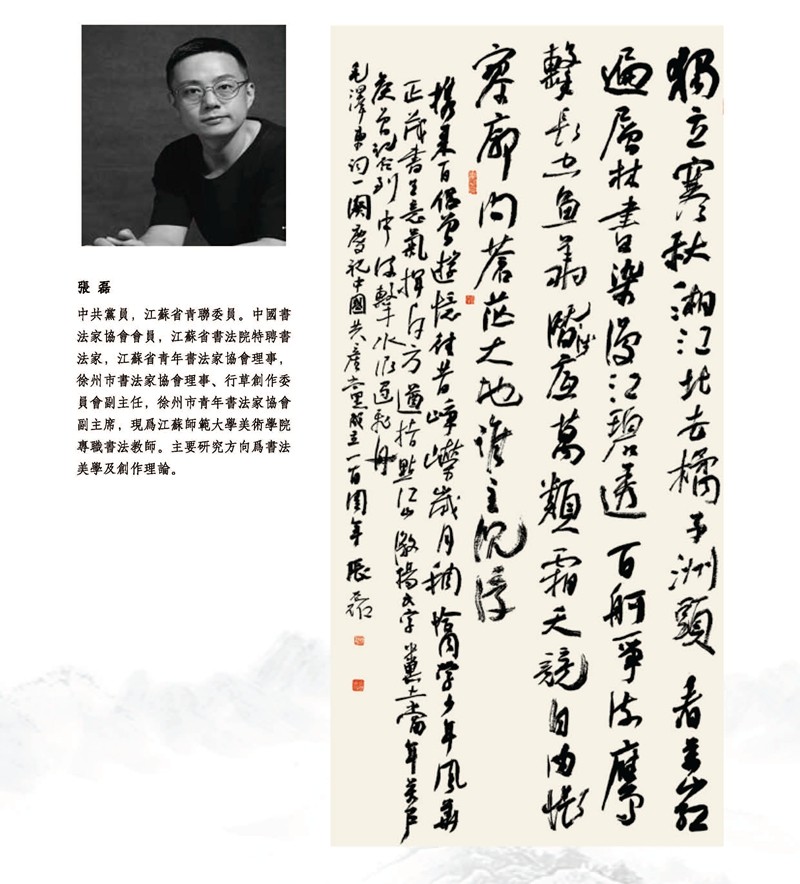 張磊
中共黨員，江蘇省青聯委員。中國書
法家協會會員，江蘇省書法院特聘書
法家，江蘇省青年書法家協會理事，
徐州市書法家協會理事、行草創作委
員會副主任，徐州市青年書法家協會
副主席，現爲江蘇師範大學美術學院
專職書法教師。主要研究方向爲書法
美學及創作理論。
獨立寒秋湘江北去橘子洲頭看萬山紅
遍層林盡染漫江碧透百舸爭流鷹
擊長空魚翔淺底萬類霜天競自由悵
寥廓問蒼茫大地誰主沉浮
攜來百侶曾遊憶往昔崢嶸歲月稠恰同學少年風華
正茂書生意氣揮斥方遒指點江山激揚文字糞土當年萬戶
侯曾記否到中流擊水浪遏飛舟
毛澤東詞一闋慶祝中國共產黨成立一百周年 張磊